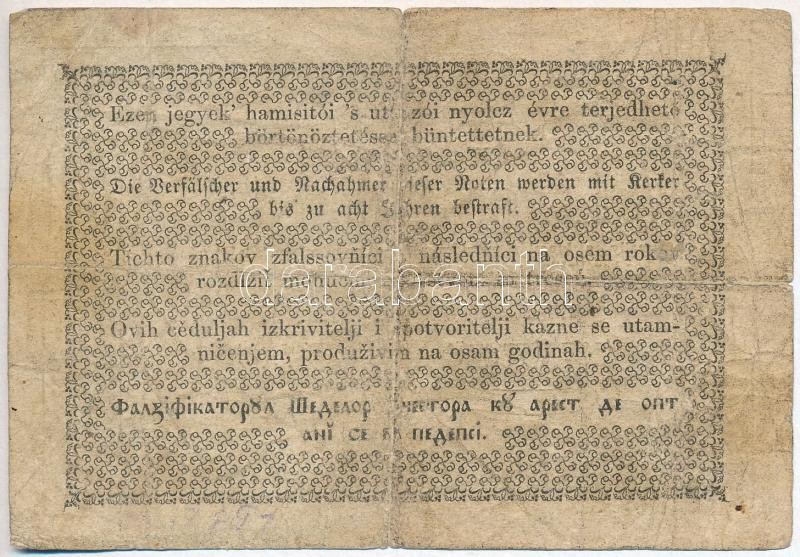 Ezen jegyek hamisitói 's utánzói nyolcz évre terjedhető
börtönöztetéssel büntettetnek.
Die Verfälscher und Nachahmer dieser Noten werden mit Kerker
bis zu acht Jahren bestraft.
Tichto znakov izfalssovňíci následňíci na osem rokov
rozdlžiť
Ovih céduljah izkrivitelji i spotvoritelji kazne se utam-
ničenjem, produživim na osam godinah.
darabanth
Фалзіфікаторꙋл Шеделор ачестора кꙋ арест де опт
анĭ се ва педепсі.